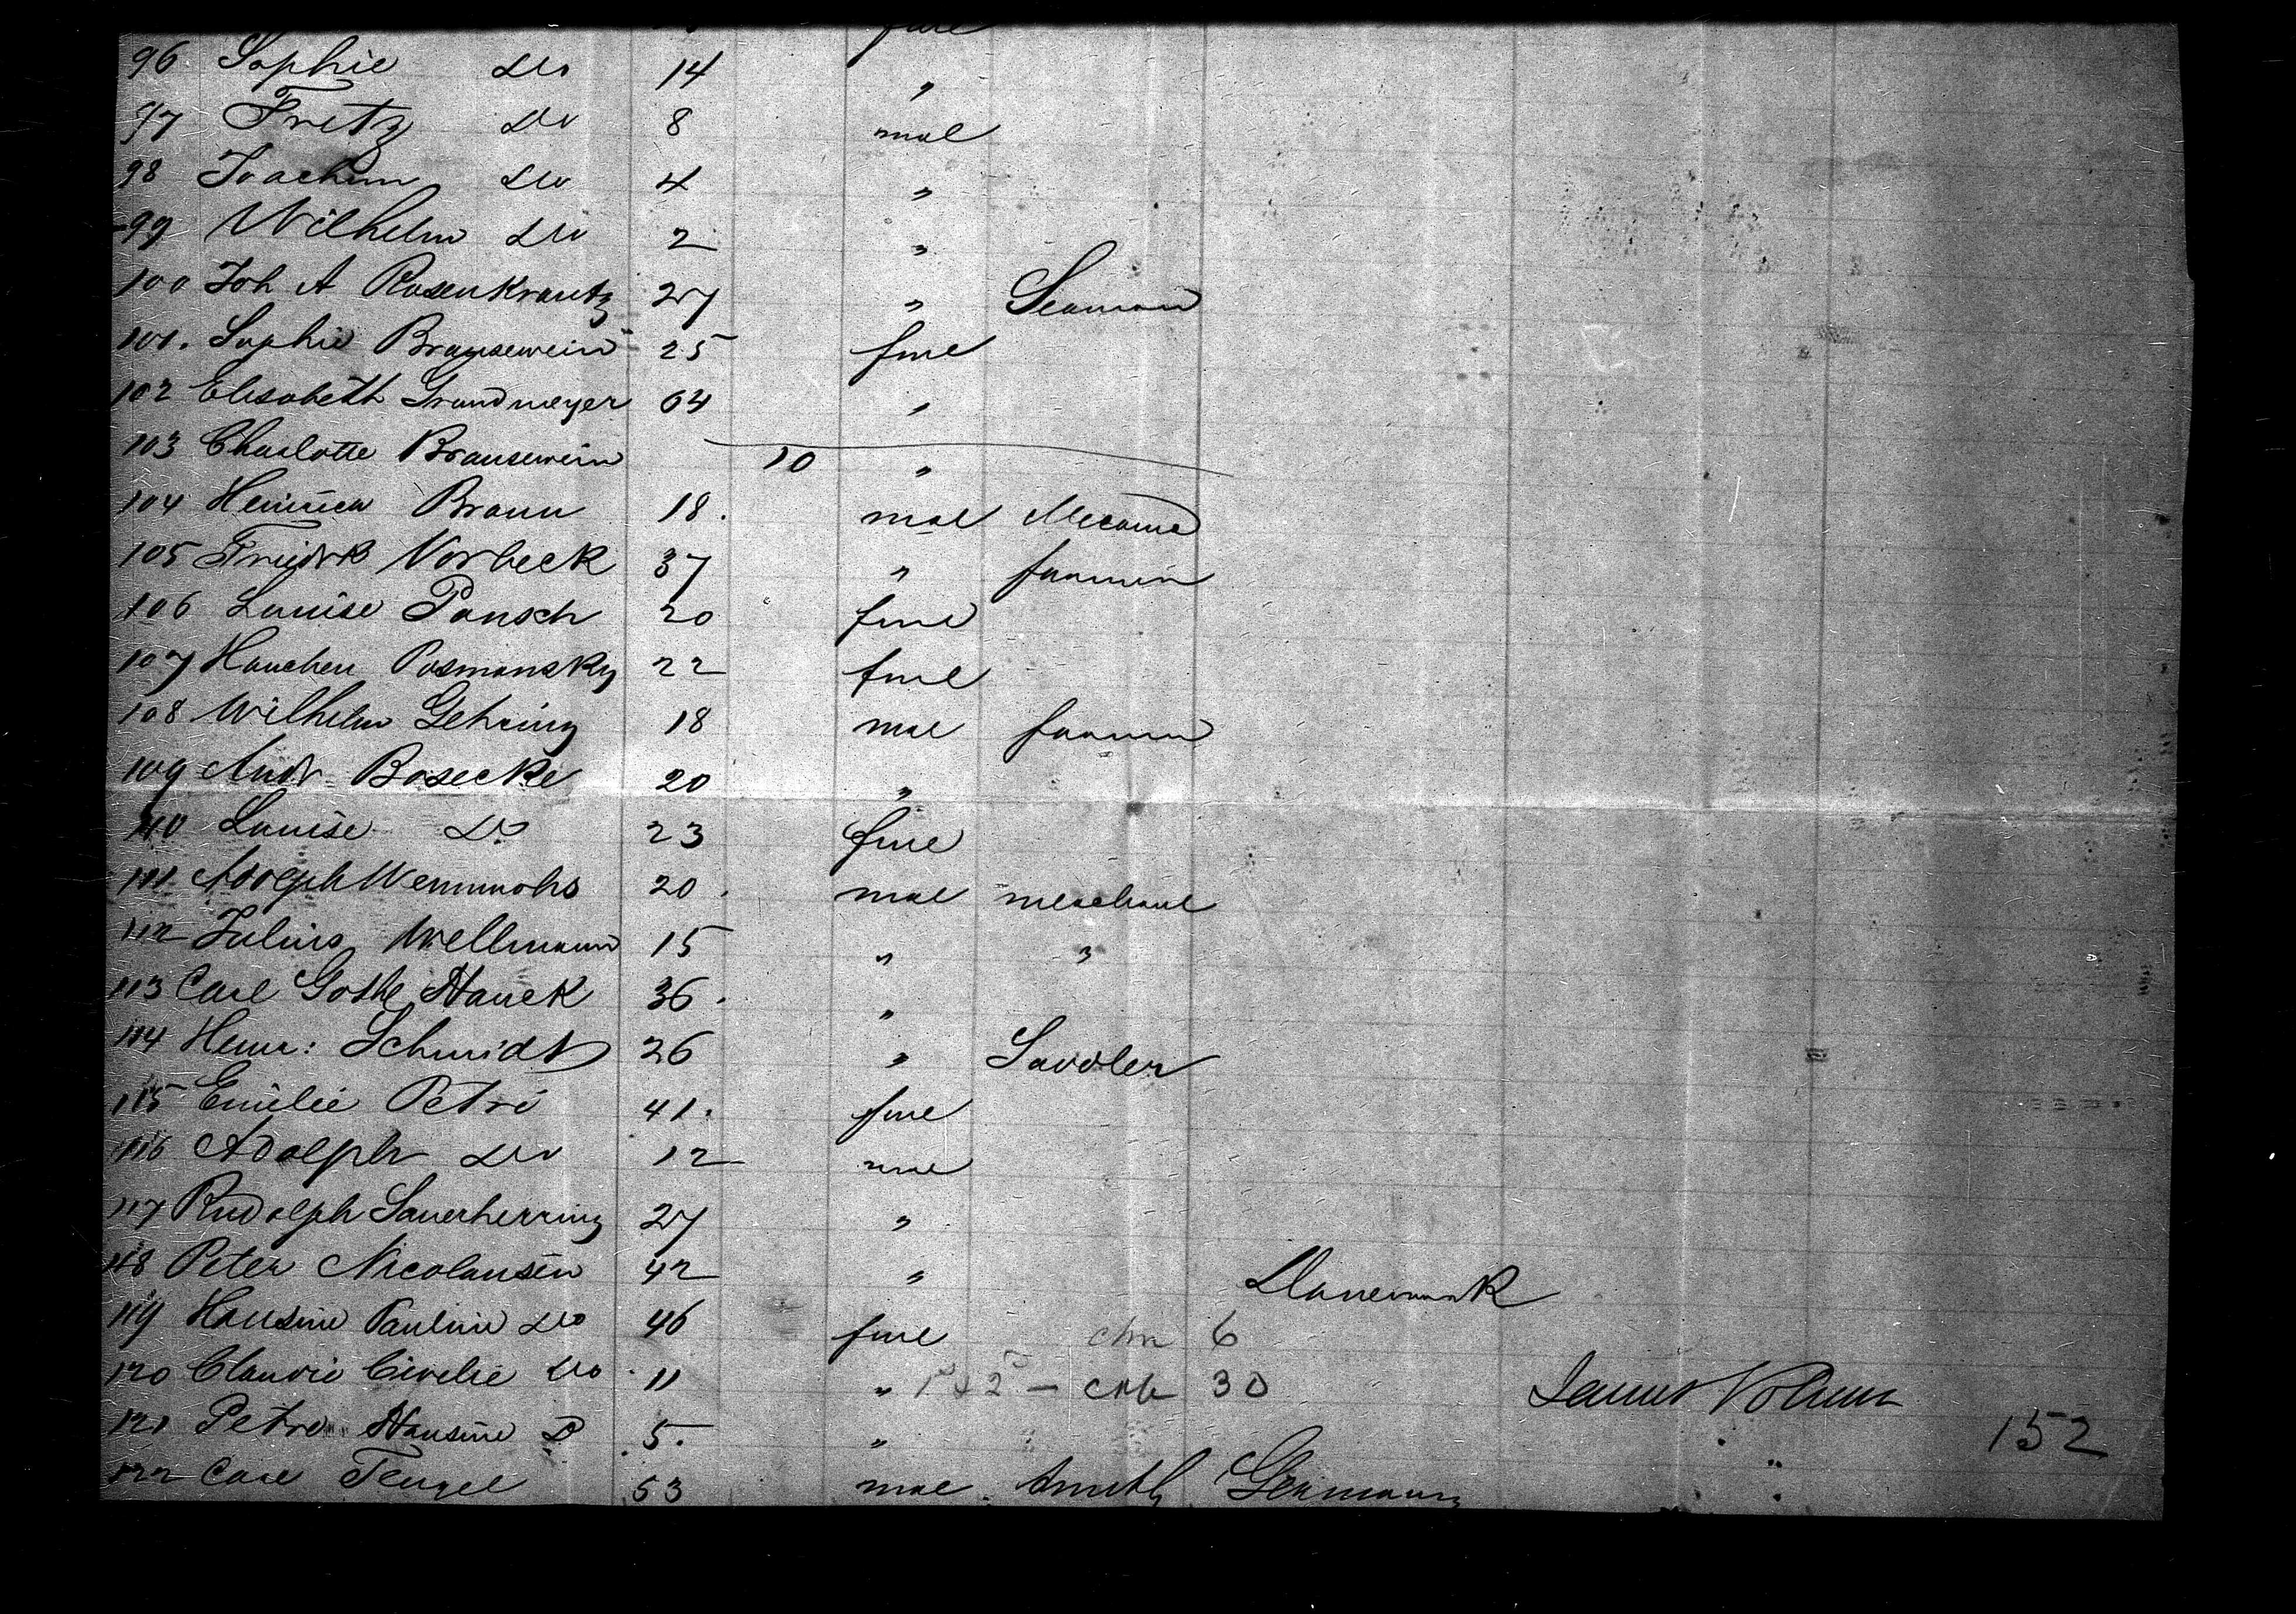 fme
96 Sophie Do 14 "
97 Fretz Do 8 mal
98 Joachim Do 4 "
99 Wilhelm Do 2 "
100 Joh A Rosenkrantz 27 " Seaman
101. Sophie Brausewein 25 fme
102 Elisabeth Grandmeyer 64 "
103 Charlotte Brausewein 10 "
104 Heinrich Braun 18. mal
105 Friedrk Vorbeck 37 " farmer
106 Louise Pansch 20 fme
107 Hanchen Posmansky 22 fme
108 Wilhelm Gehring 18 mal farmer
109 Andr Bosecke 20 "
110 Louise Do 23 fme
111 Adolph Wemmohs 20. mal
112 Julius Wellmann 15 " "
113 Carl Gothe Hauck 36. "
114 Heinr: Schmidt 26 " Saddler
115 Emilie Petri 41. fme
116 Adolph Do 12 mal
117 Rudolph Sauerherring 27 "
118 Peter Nicolausen 42 " Danemark
119 Hansine Pauline Do 46 fme 6
120 Claudie Do 11 " 30
121 Petro Hansine Do 5. " " 152
122 Carl Tengel 53 mal Smith Germany "